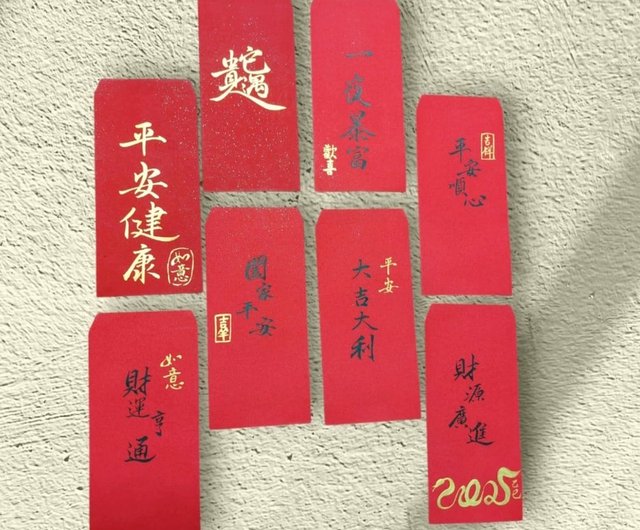 一夜暴富
歡喜
平安健康
如意
吉祥
平安順心
闔家平安
吉祥
平安
大吉大利
如意
財運亨通
財源廣進
2025
乙巳